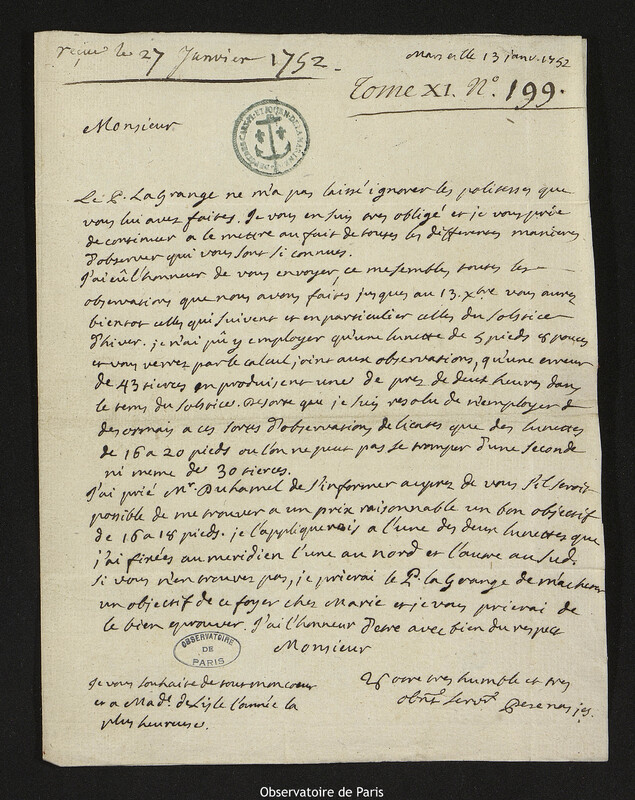 reçue le 27 Janvier 1752.
Marseille 13 janv. 1752
Tome XI. N.º 199.
Monsieur
Le P. LaGrange ne m'a pas laissé ignorer les politesses que
vous lui avez faites. Je vous en suis tres obligé et je vous prie
de continuer a le mettre au fait de toutes les differentes manieres
d'observer qui vous sont si connues.
J'ai eû l'honneur de vous envoyer, ce me semble, toutes les
observations que nous avons faites jusques au 13. xbre vous aurez
bientot celles qui suivent et en particulier celles du solstice
d'hiver. je n'ai pû y employer qu'une lunette de 5 pieds 8 pouces
et vous verrez par le calcul joint aux observations, qu'une erreur
de 43 tierces en produisent une de pres de deux heures dans
le tems du solstice. Desorte que je suis resolu de n'employer
desormais a ces sortes d'observations delicates que des lunettes
de 16 a 20 pieds ou l'on ne peut pas se tromper d'une seconde
ni meme de 30 tierces.
J'ai prié Mr. Duhamel de s'informer aupres de vous s'il seroit
possible de me trouver a un prix raisonnable un bon objectif
de 16 a 18 pieds. je l'appliquerois a l'une des deux lunettes que
j'ai fixées au meridien l'une au nord et l'autre au sud.
si vous n'en trouvez pas, je prierai le P. la Grange de m'acheter
un objectif de ce foyer chez Marie et je vous prierai de
le bien eprouver. J'ai l'honneur d'etre avec bien du respect
Monsieur
OBSERVATOIRE
DE
PARIS
Votre tres humble et tres
obnt. servt. Pezenas j.
Je vous souhaite de tout mon coeur
et a Made. de Lisle l'année la
plus heureuse.
Observatoire de Paris